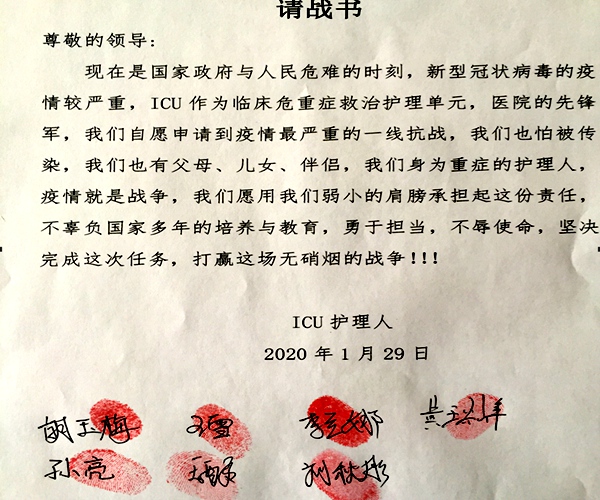 请战书
尊敬的领导：
现在是国家政府与人民危难的时刻，新型冠状病毒的疫
情较严重，ICU 作为临床危重症救治护理单元，医院的先锋
军，我们自愿申请到疫情最严重的一线抗战，我们也怕被传
染，我们也有父母、儿女、伴侣，我们身为重症的护理人，
疫情就是战争，我们愿用我们弱小的肩膀承担起这份责任，
不辜负国家多年的培养与教育，勇于担当，不辱使命，坚决
完成这次任务，打赢这场无硝烟的战争！！！
ICU 护理人
2020 年 1 月 29 日
胡玉梅
孙亮 刘秋彤